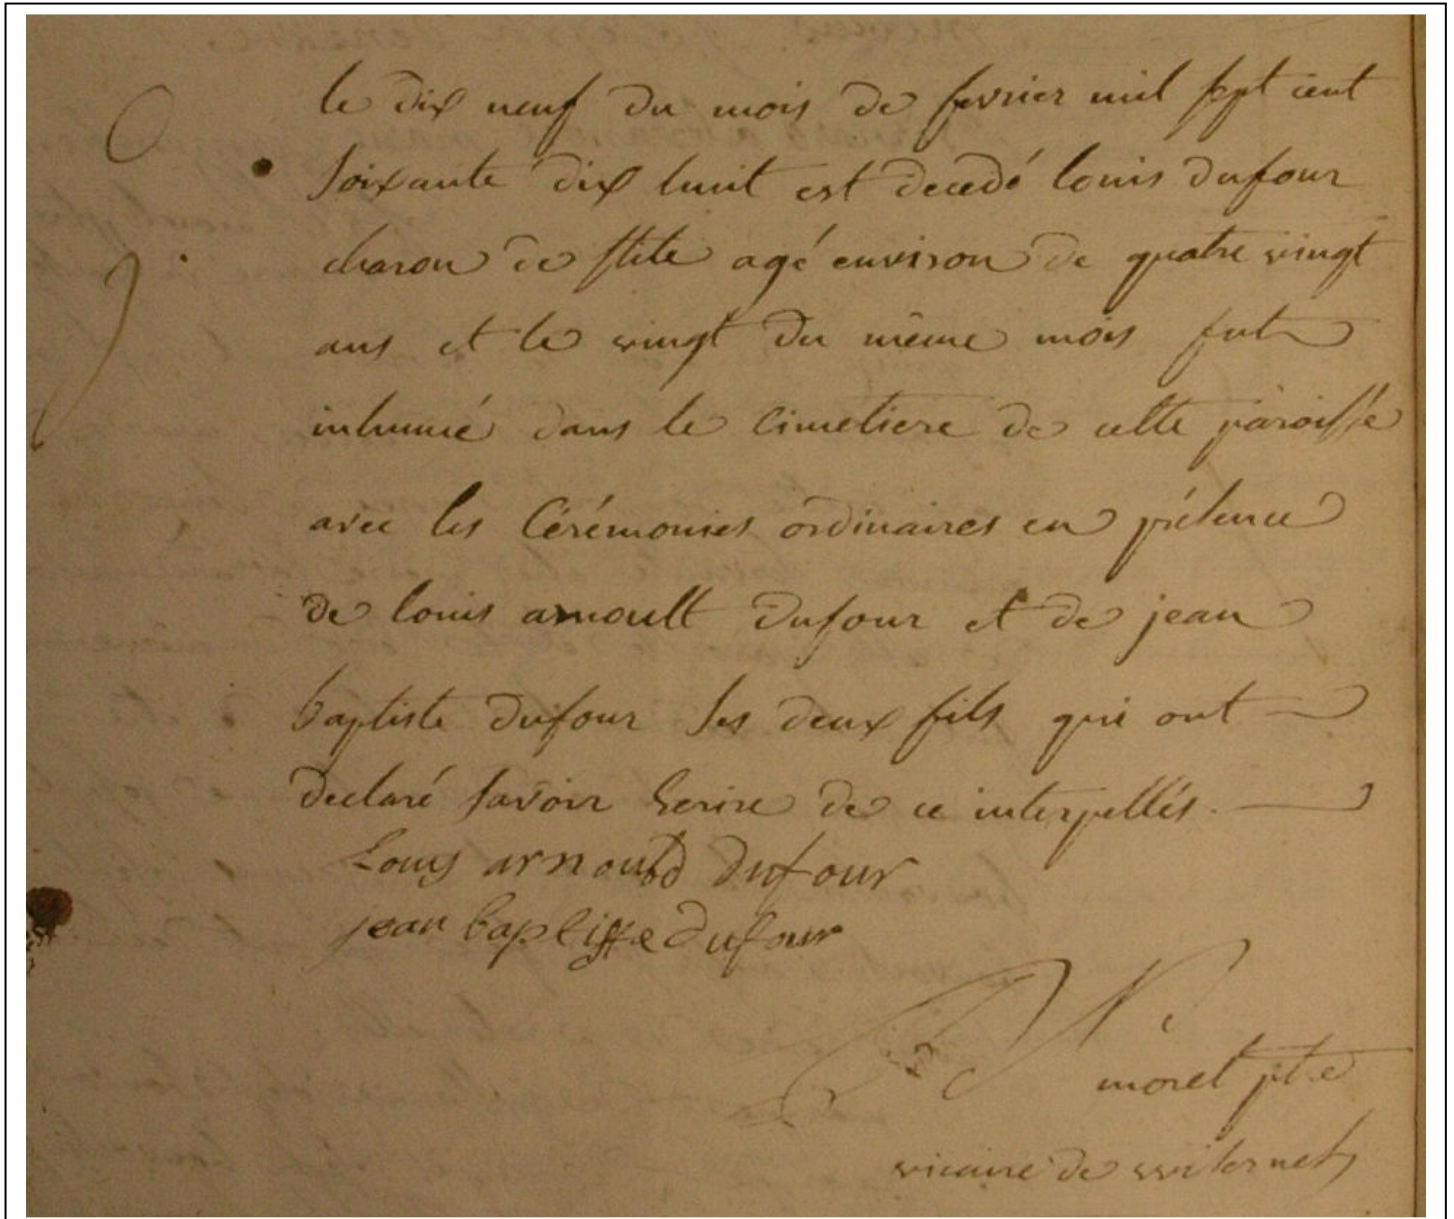 le dix neuf du mois de fevrier mil sept cent
soixante dix huit est decedé louis dufour
charon de flite agé environ de quatre vingt
ans et le vingt du même mois fut
inhumé dans le cimetiere de cette paroisse
avec les Cérémonies ordinaires en présence
de louis arnoult dufour et de jean
baptiste dufour ses deux fils qui ont
declaré savoir Ecrire de ce interpellés.
Louys arnould dufour
jean baptiste dufour
morel ptre
vicaire de witernes